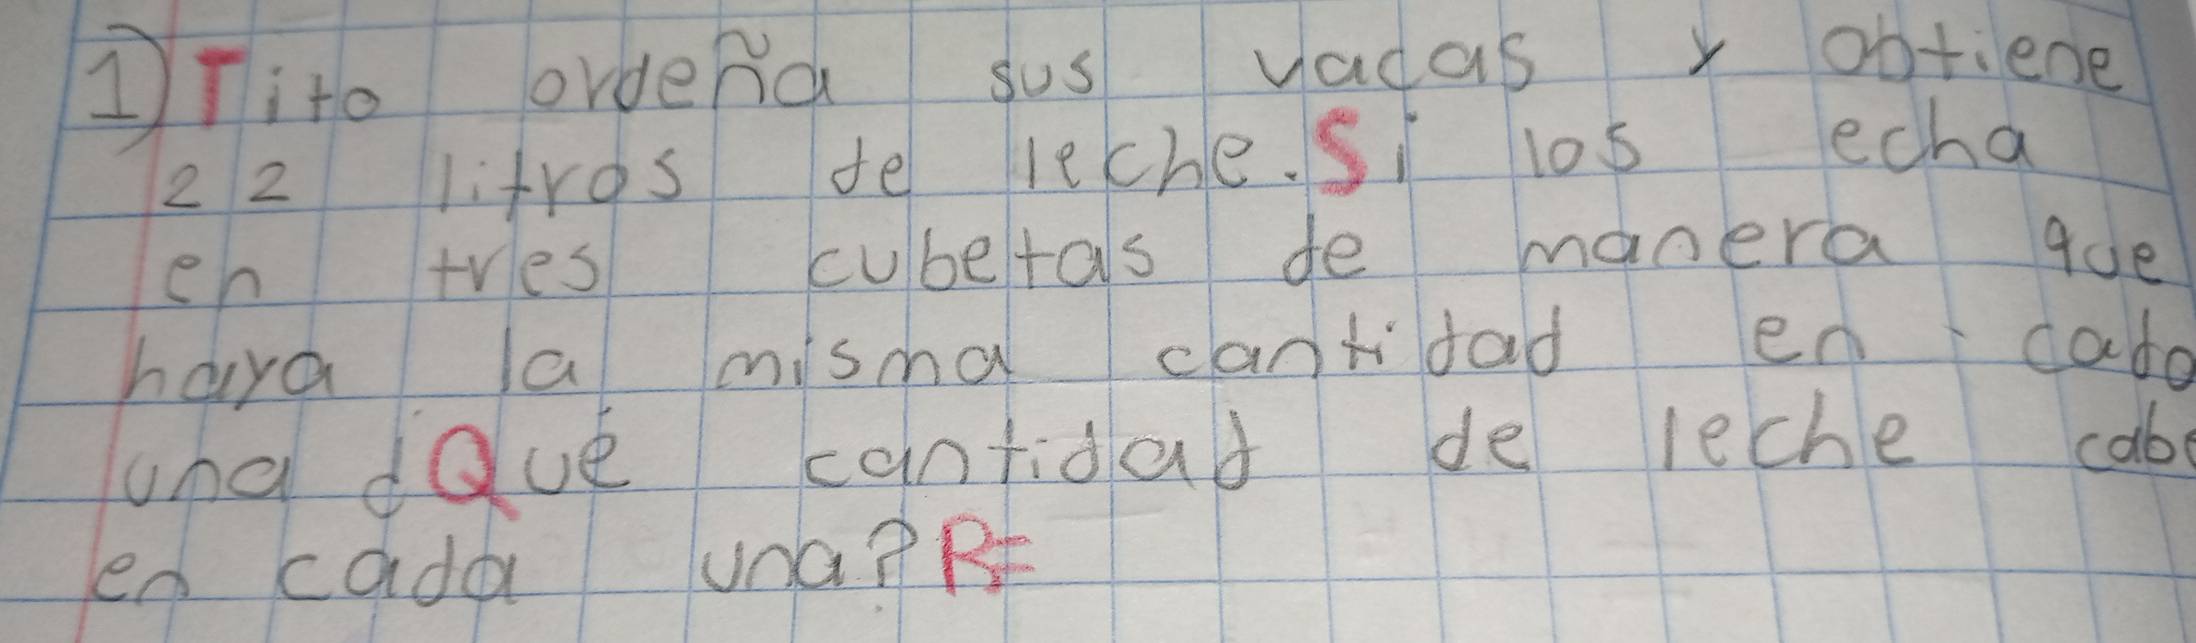 1) Tito ordeña sus vacas y obtiene
22 litros de leche. Si los echa
en tres cubetas de manera que
haya la misma cantidad en cada
una ¿Qué cantidad de leche cabe
en cada una? R=